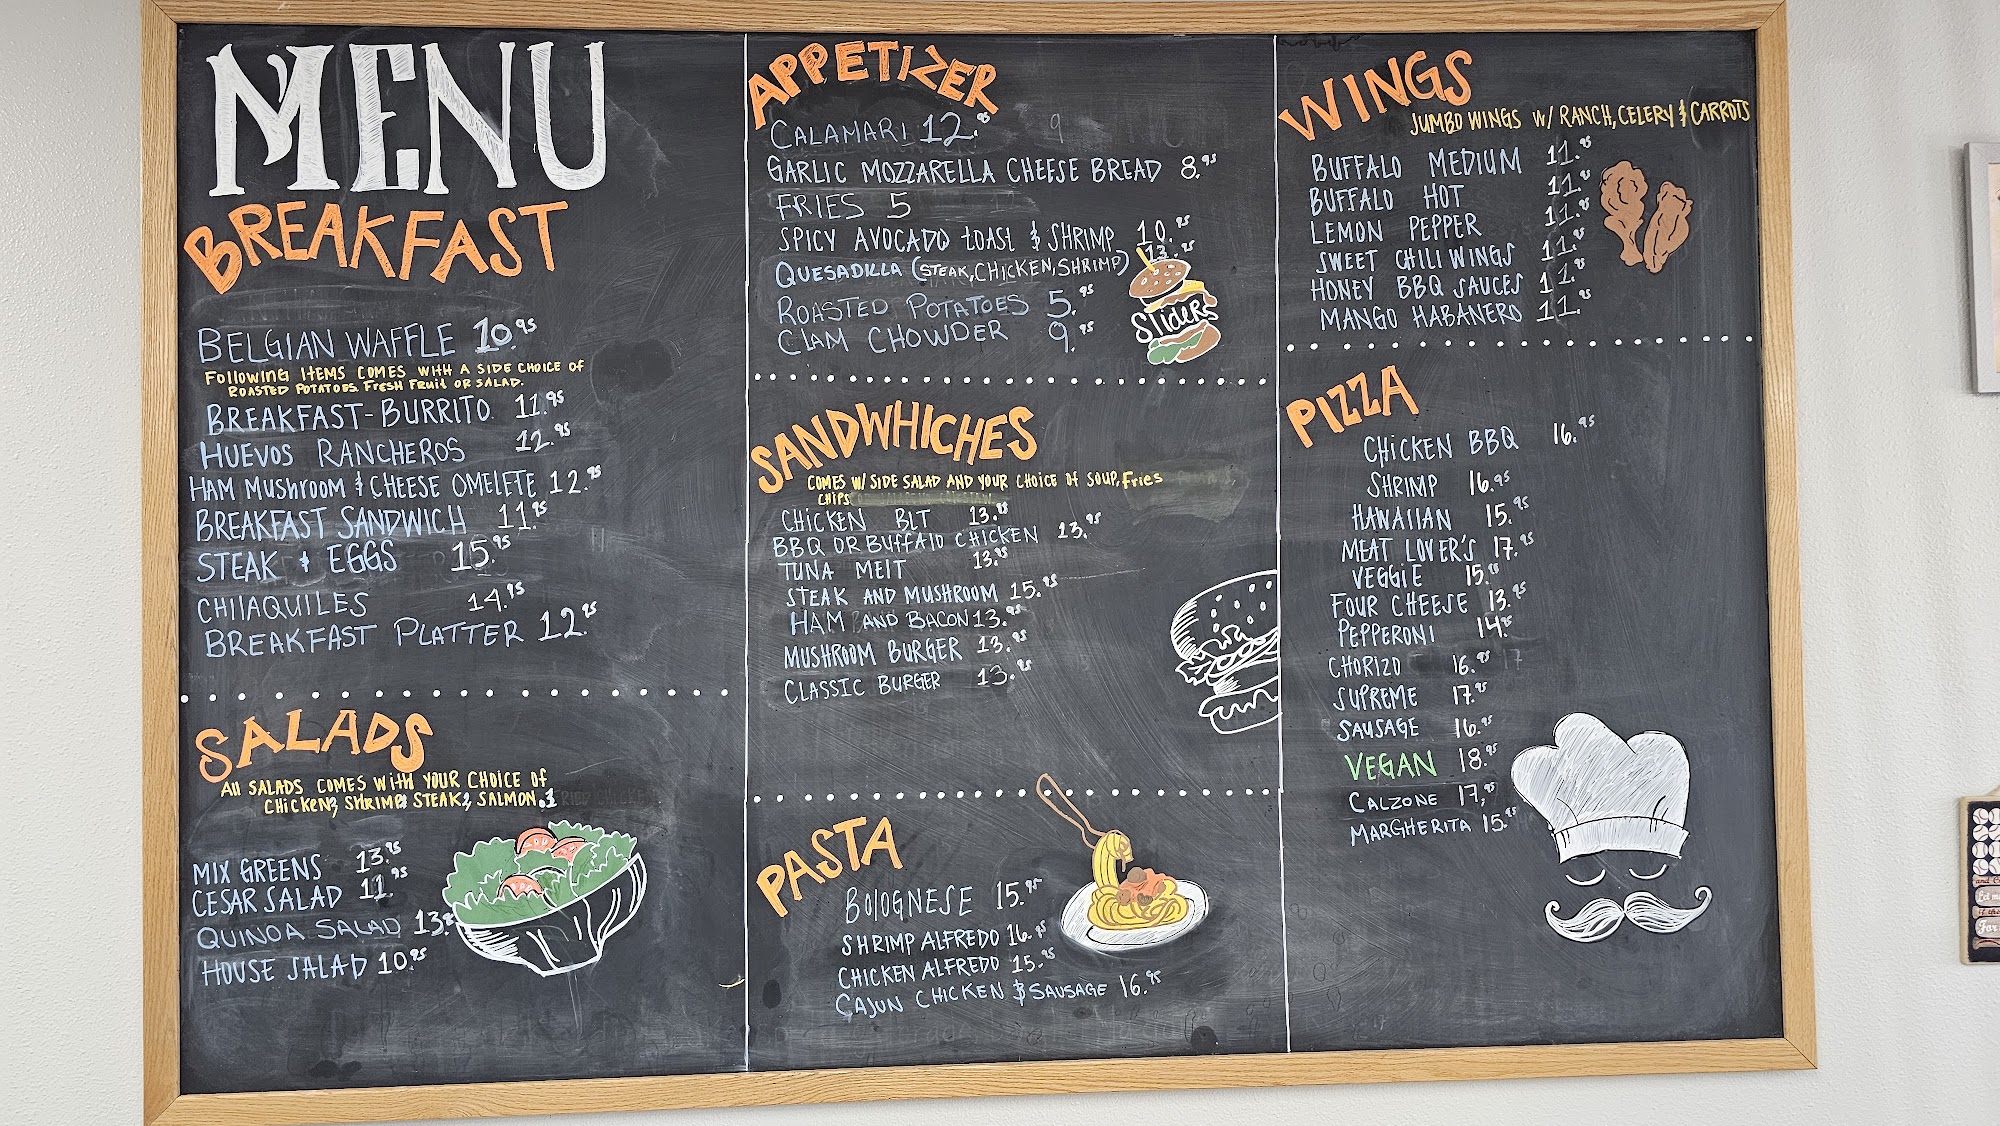 MENU
BREAKFAST
BELGIAN WAFFLE 10.95
FOllOWiNG ITEMS COMES WITH A SIDE CHOICE OF
ROASTED POTATOES. FRESH FRUIT OR SALAD.
BREAKFAST-BURRITO. 11.95
HUEVOS RANCHEROS 12.95
HAM MUSHROOM & CHEESE OMELETE 12.95
BREAKFAST SANDWICH 11.95
STEAK & EGGS 15.95
CHIlAQUILES 14.95
BREAKFAST PLATTER 12.95
SALADS
All SALADS COMES WITH YOUR CHOICE OF
CHICKEN, SHRIMP, STEAK, SALMON.
MIX GREENS 13.95
CESAR SALAD 11.95
QUINOA SALAD 13.
HOUSE SALAD 10.95
APPETIZER
CALAMARI 12.
GARLIC MOZZARELLA CHEESE BREAD 8.95
FRIES 5
SPICY AVOCADO TOAST & SHRIMP 10.95
QUESADILLA (STEAK, CHICKEN, SHRIMP) 13.95
ROASTED POTATOES 5.95
CLAM CHOWDER 9.95
SlideRS
SANDWHICHES
COMES W/ SIDE SALAD AND YOUR CHOICE OF SOUP, Fries
CHIPS
CHICKEN BLT 13.95
BBQ OR BUFFALO CHICKEN 13.95
TUNA MElT 13.95
STEAK AND MUSHROOM 15.95
HAM AND BACON 13.95
MUSHROOM BURGER 13.95
CLASSIC BURGER 13.95
PASTA
BOlOGNESE 15.95
SHRIMP ALFREDO 16.95
CHICKEN ALFREDO 15.95
CAJUN CHICKEN & SAUSAGE 16.95
WINGS
JUMBO WINGS W/ RANCH, CELERY & CARROTS
BUFFALO MEDIUM 11.95
BUFFALO HOT 11.95
LEMON PEPPER 11.95
SWEET CHILI WINGS 11.95
HONEY BBQ SAUCES 11.95
MANGO HABANERO 11.95
PIZZA
CHICKEN BBQ 16.95
SHRIMP 16.95
HAWAIIAN 15.95
MEAT LOVER'S 17.95
VEGGIE 15.95
FOUR CHEESE 13.95
PEPPERONI 14.95
CHORIZO 16.95
SUPREME 17.95
SAUSAGE 16.95
VEGAN 18.95
CALZONE 17.95
MARGHERITA 15.95